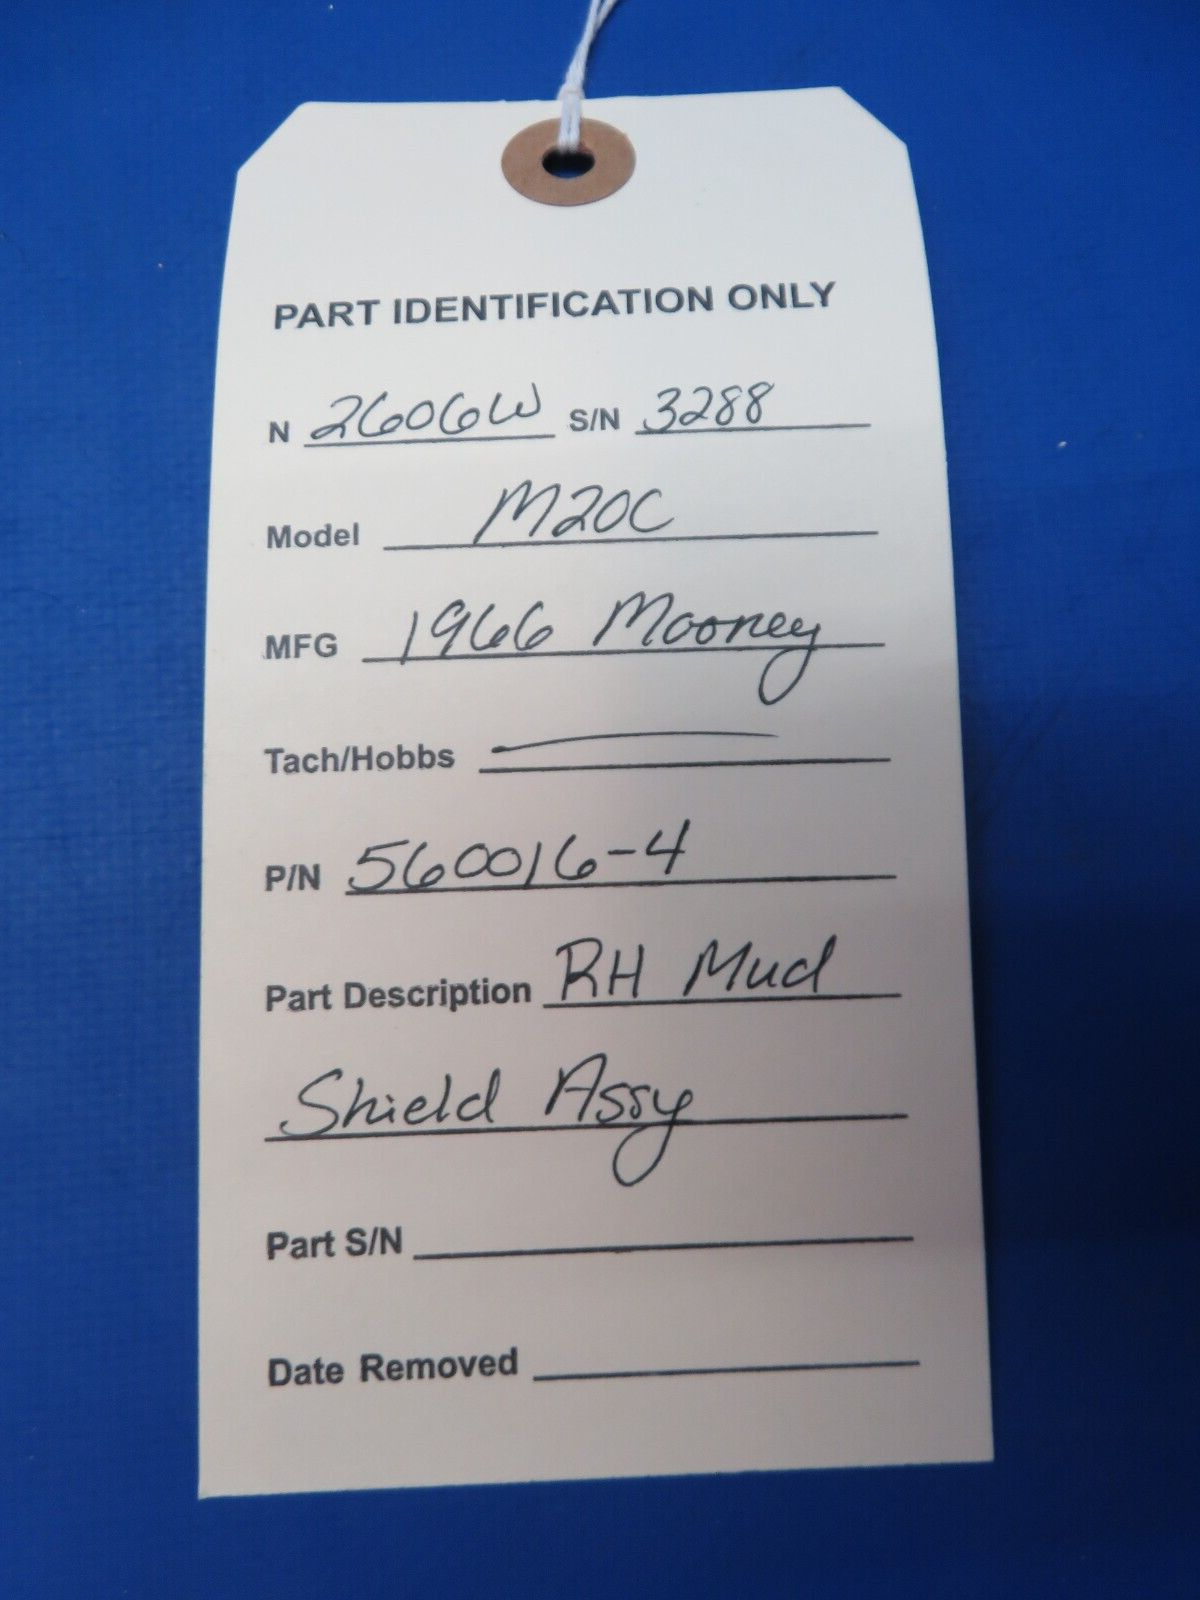 PART IDENTIFICATION ONLY
N 2606W S/N 3288
Model M20C
MFG 1966 Mooney
Tach/Hobbs —
P/N 560016-4
Part Description RH Mud
Shield Assy
Part S/N
Date Removed